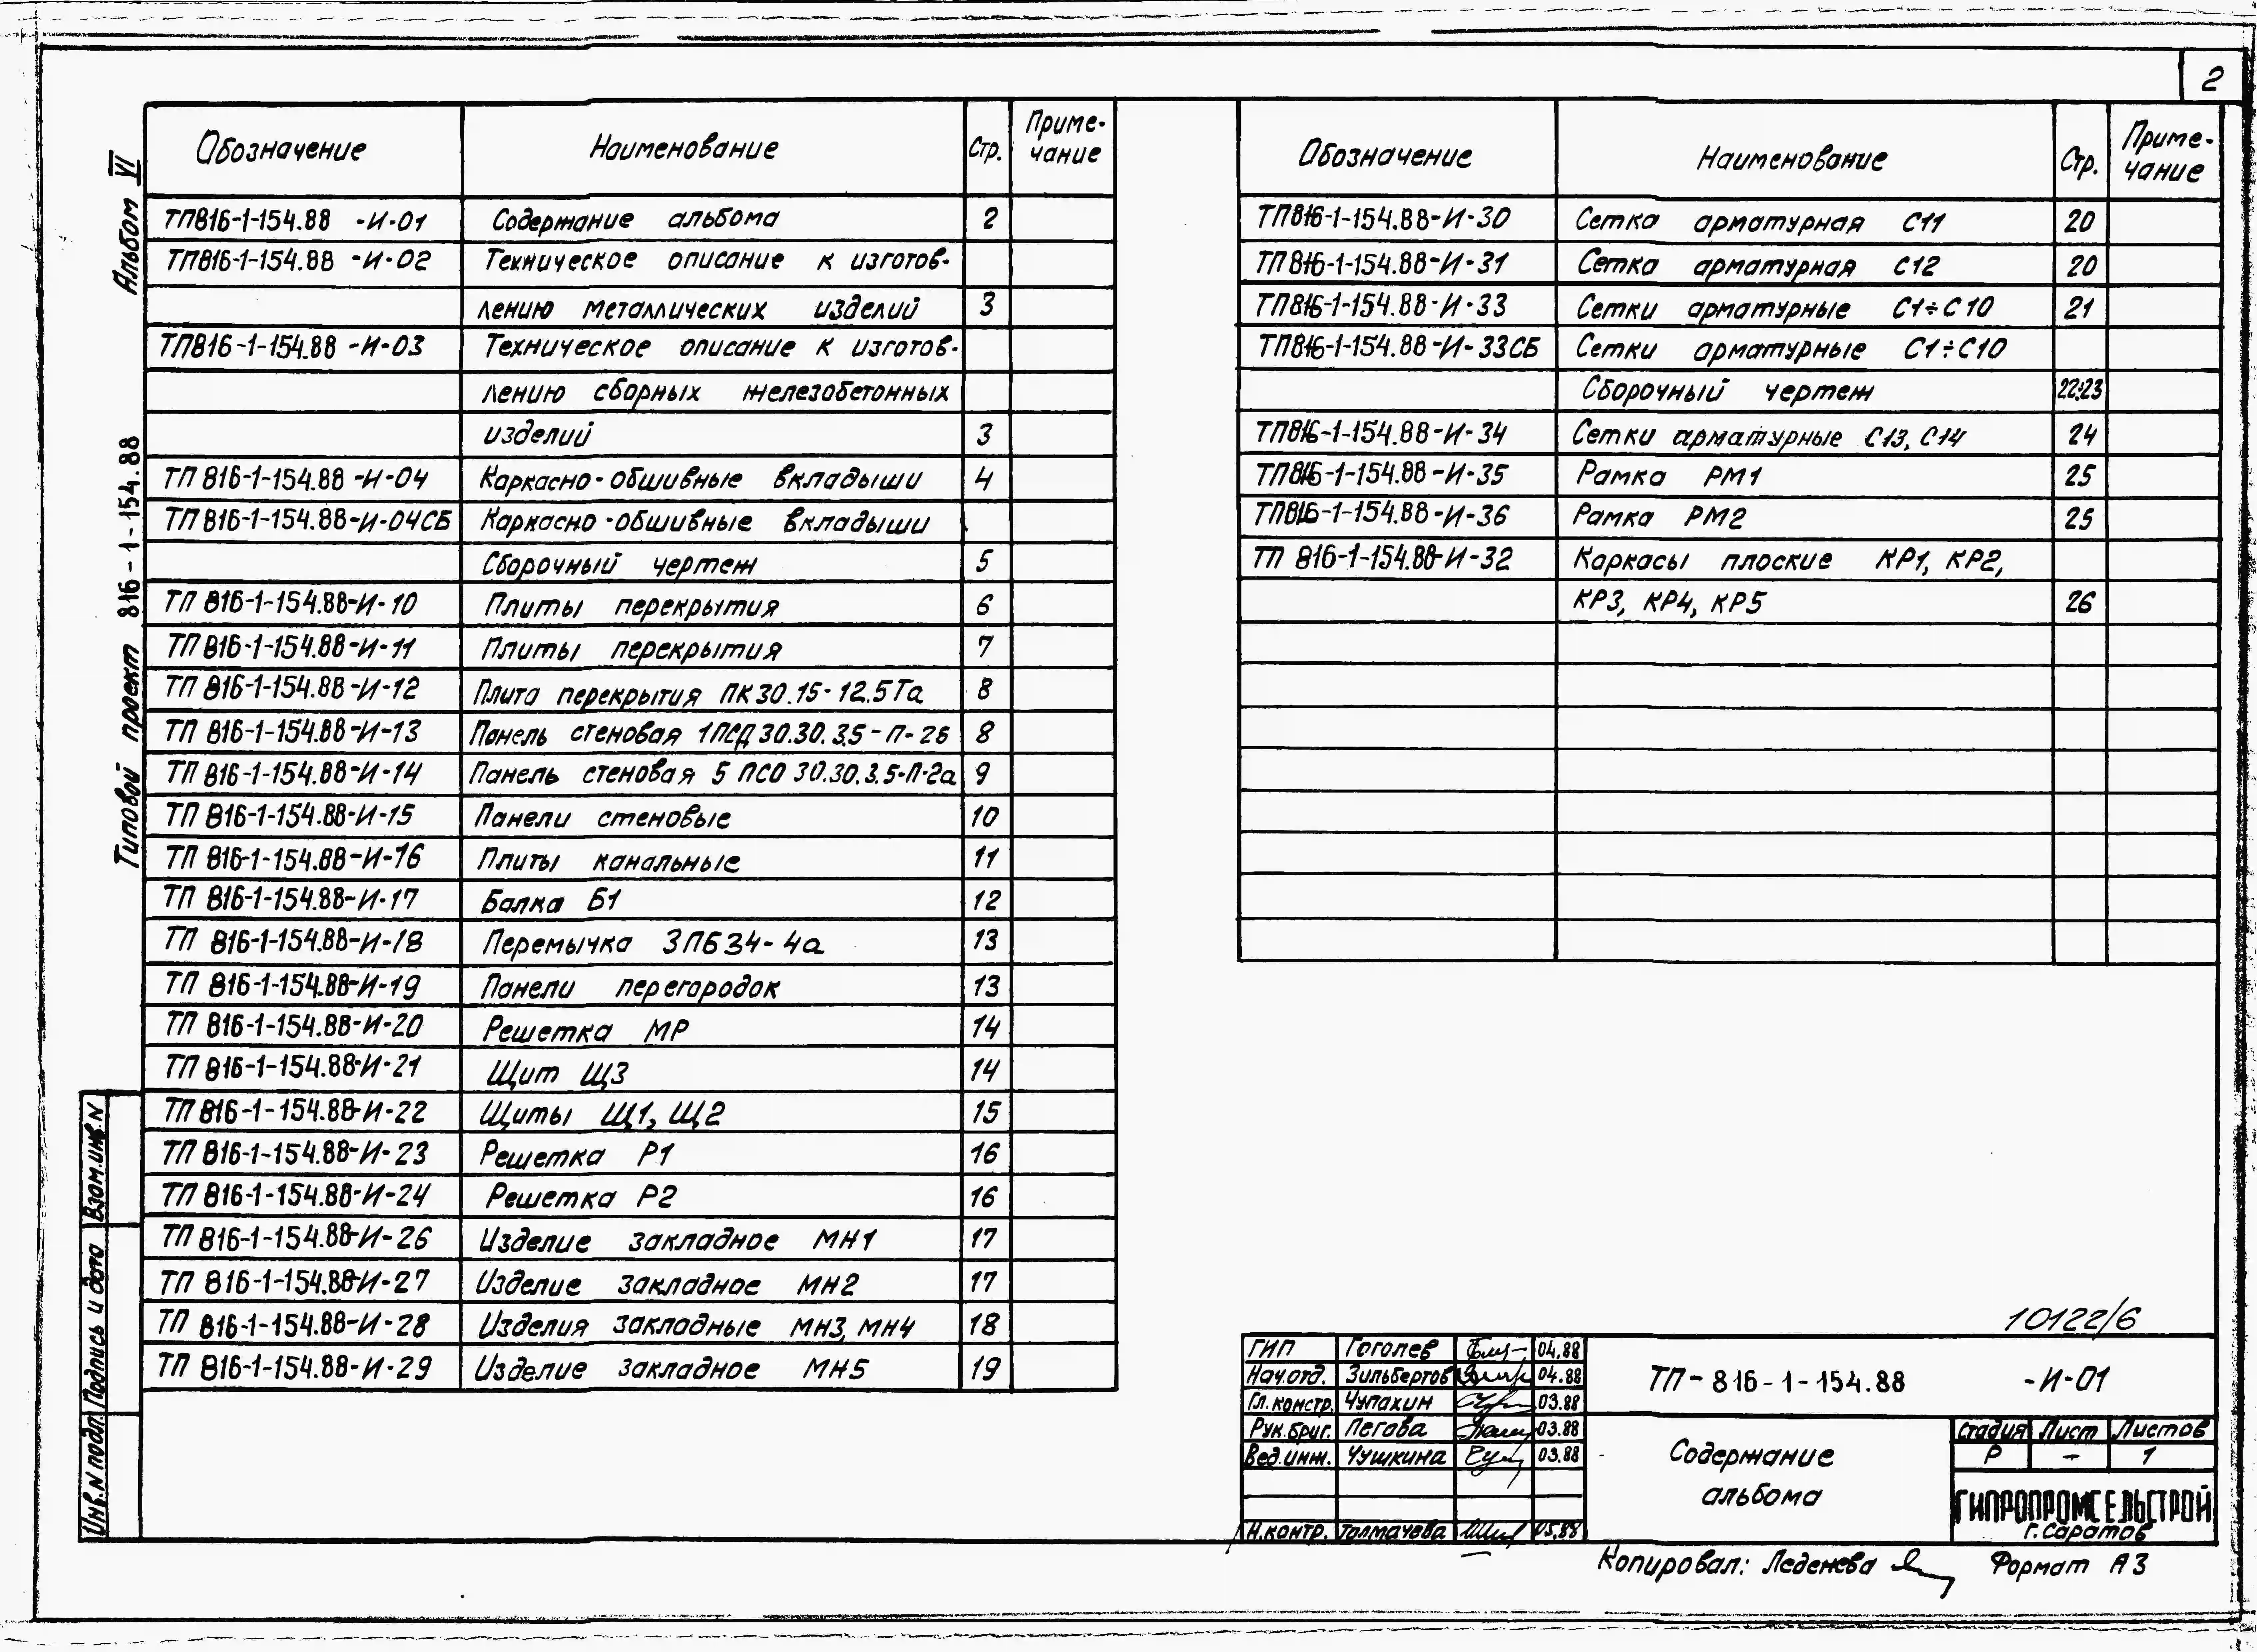 2
Альбом VI
Типовой проект 816-1-154.88
Обозначение Наименование Стр. Приме-
чание
ТП816-1-154.88 -И-01 Содержание альбома 2
ТП816-1-154.88 -И-02 Техническое описание к изготов-
лению металлических изделий 3
ТП816-1-154.88 -И-03 Техническое описание к изготов-
лению сборных железобетонных
изделий 3
ТП 816-1-154.88 -И-04 Каркасно-обшивные вкладыши 4
ТП 816-1-154.88-И-04СБ Каркасно-обшивные вкладыши
Сборочный чертеж 5
ТП 816-1-154.88-И-10 Плиты перекрытия 6
ТП 816-1-154.88-И-11 Плиты перекрытия 7
ТП 816-1-154.88-И-12 Плита перекрытия ПК30.15-12.5Та 8
ТП 816-1-154.88-И-13 Панель стеновая 1ПСД 30.30.3.5-П-2б 8
ТП 816-1-154.88-И-14 Панель стеновая 5 ПСО 30.30.3.5-П-2а 9
ТП 816-1-154.88-И-15 Панели стеновые 10
ТП 816-1-154.88-И-16 Плиты канальные 11
ТП 816-1-154.88-И-17 Балка Б1 12
ТП 816-1-154.88-И-18 Перемычка 3ПБ34-4а 13
ТП 816-1-154.88-И-19 Панели перегородок 13
ТП 816-1-154.88-И-20 Решетка МР 14
ТП 816-1-154.88-И-21 Щит Щ3 14
ТП 816-1-154.88-И-22 Щиты Щ1, Щ2 15
ТП 816-1-154.88-И-23 Решетка Р1 16
ТП 816-1-154.88-И-24 Решетка Р2 16
ТП 816-1-154.88-И-26 Изделие закладное МН1 17
ТП 816-1-154.88-И-27 Изделие закладное МН2 17
ТП 816-1-154.88-И-28 Изделия закладные МН3, МН4 18
ТП 816-1-154.88-И-29 Изделие закладное МН5 19
Обозначение Наименование Стр. Приме-
чание
ТП816-1-154.88-И-30 Сетка арматурная С11 20
ТП816-1-154.88-И-31 Сетка арматурная С12 20
ТП816-1-154.88-И-33 Сетки арматурные С1÷С10 21
ТП816-1-154.88-И-33СБ Сетки арматурные С1÷С10
Сборочный чертеж 22÷23
ТП816-1-154.88-И-34 Сетки арматурные С13, С14 24
ТП816-1-154.88-И-35 Рамка РМ1 25
ТП816-1-154.88-И-36 Рамка РМ2 25
ТП 816-1-154.88-И-32 Каркасы плоские КР1, КР2,
КР3, КР4, КР5 26
Взам.инв.N
Подпись и дата
Инв.N подл.
10122/6
ГИП Гоголев 04.88
Нач.отд. Зильбертов 04.88
Гл.констр. Чупахин 03.88
Рук.бриг. Пегова 03.88
Вед.инж. Чушкина 03.88
Н.контр. Толмачева 05.88
ТП-816-1-154.88 -И-01
Содержание
альбома
Стадия Лист Листов
Р - 1
ГИПРОПРОМСЕЛЬСТРОЙ
г.Саратов
Копировал: Леденева Формат А3